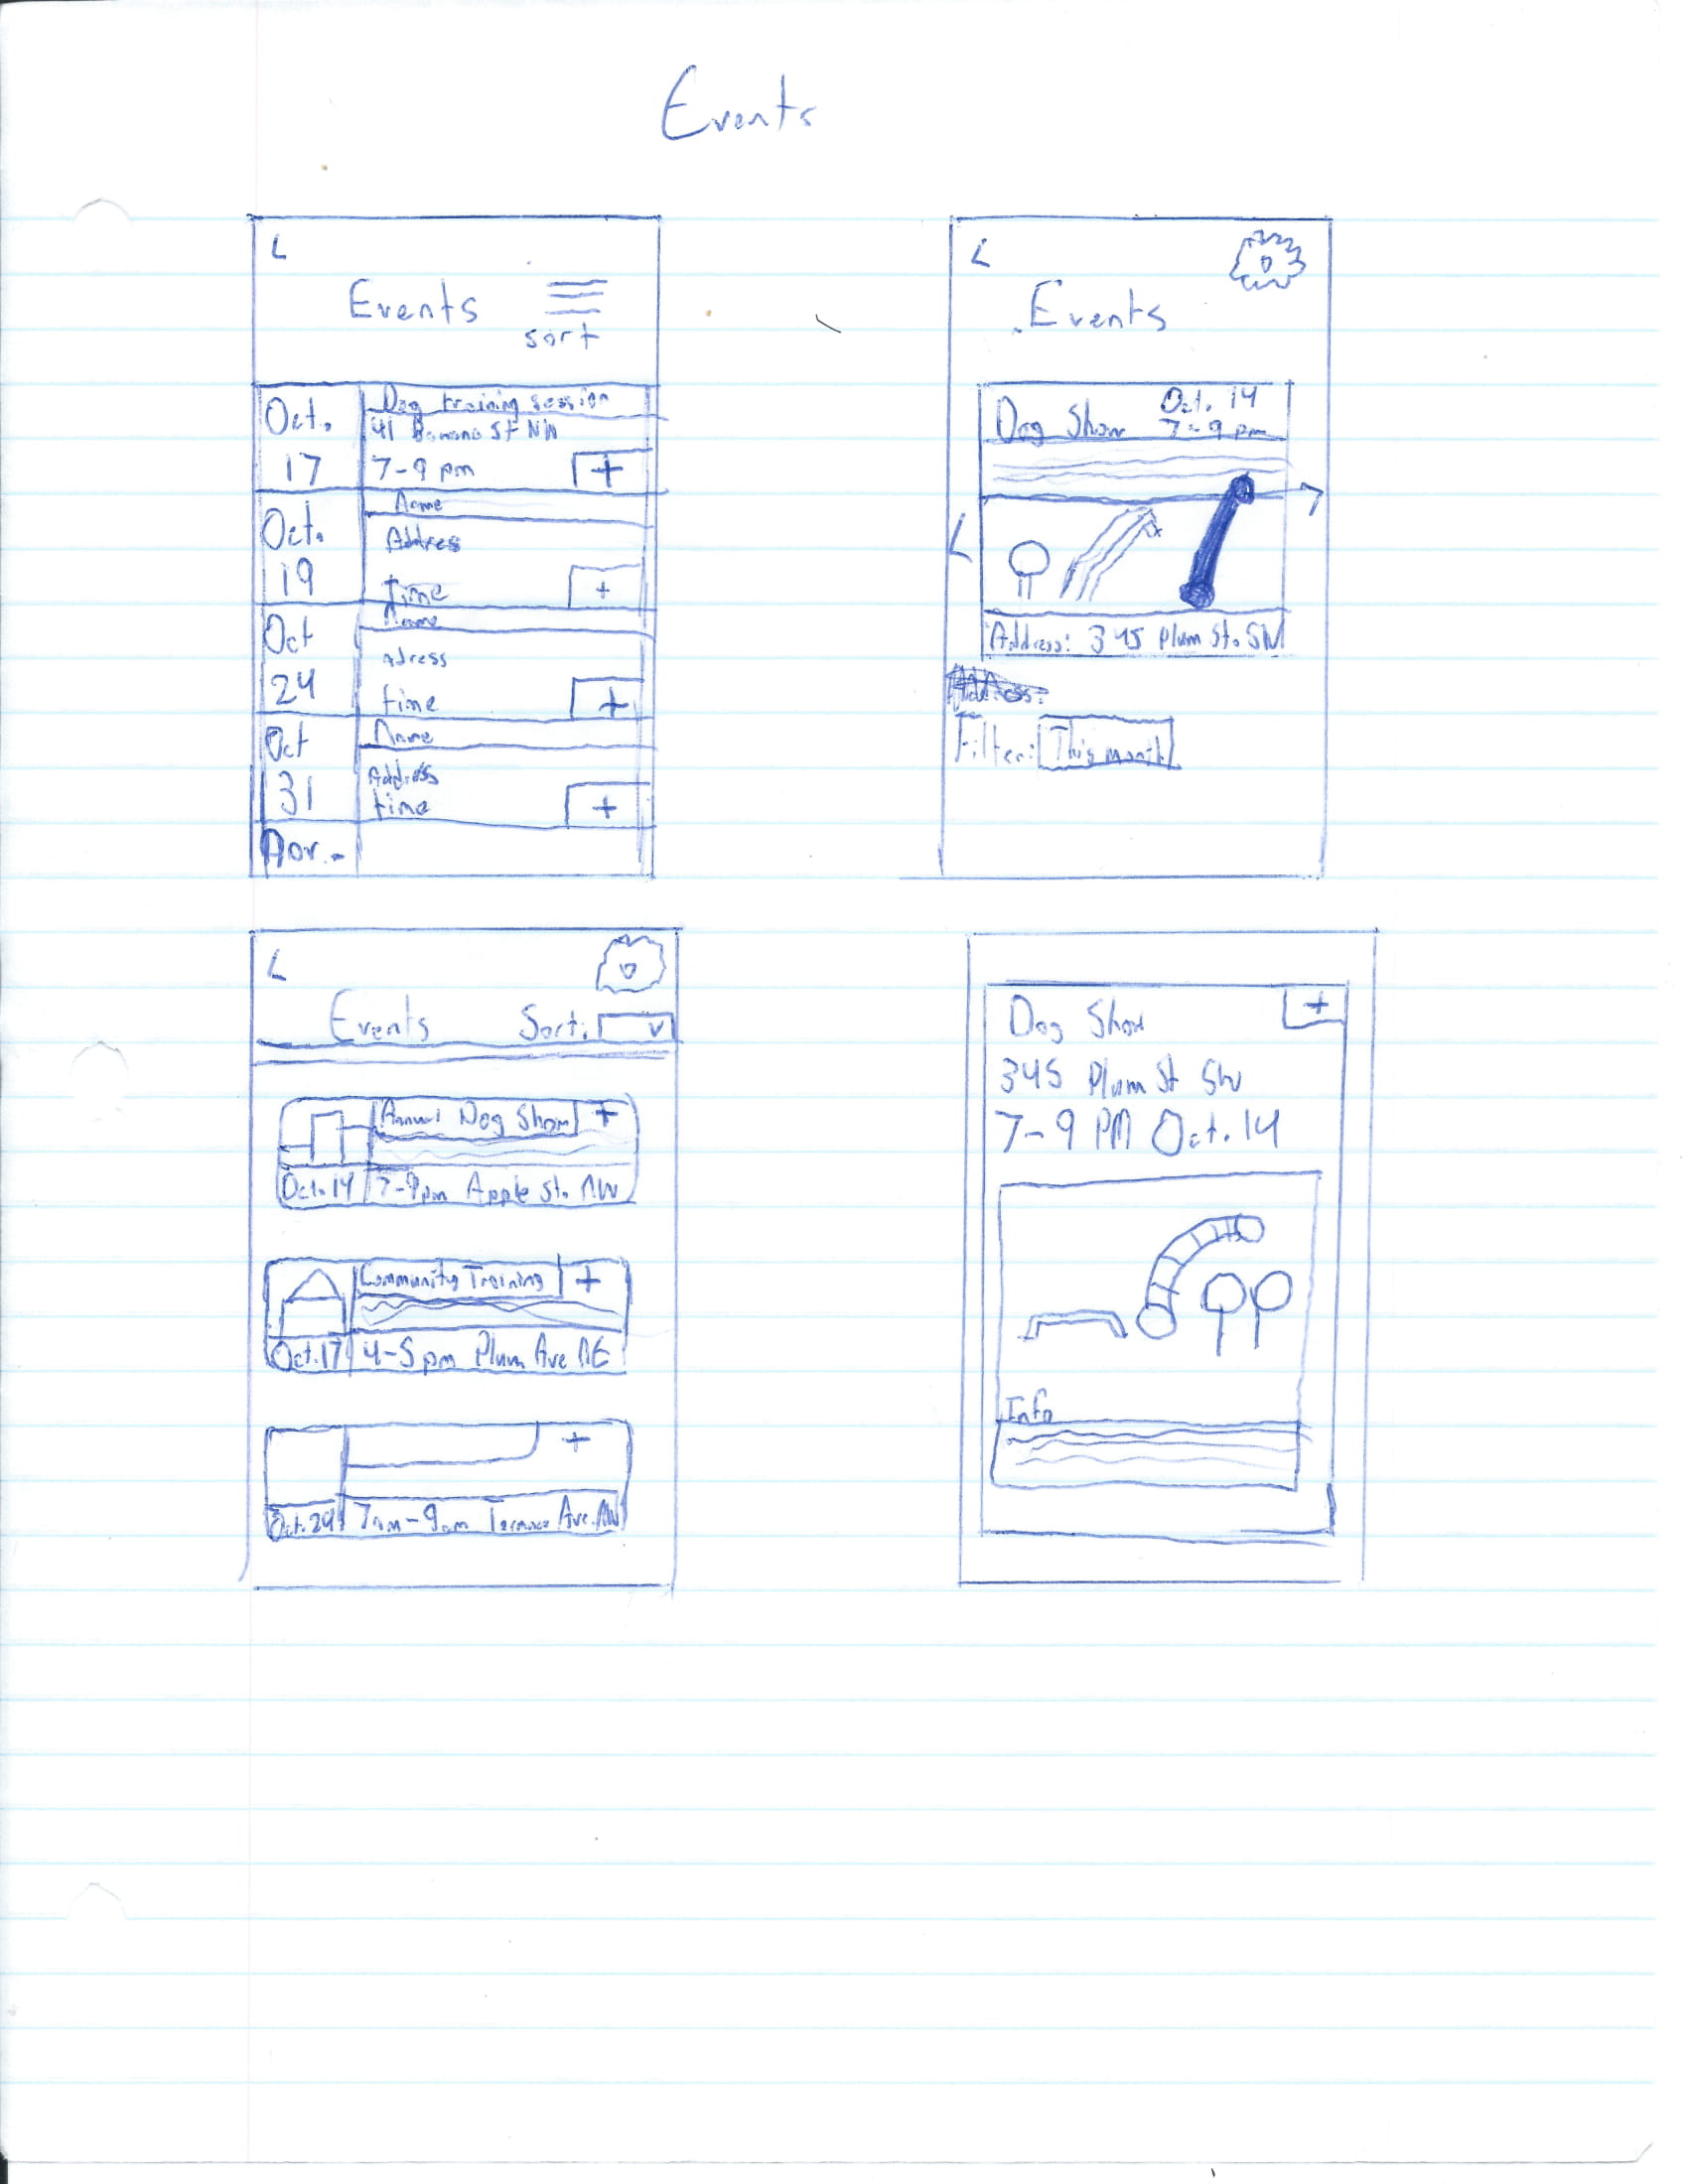 Events
Events
sort
Oct.
17
Dog training session
41 Banana St NW
7-9 pm
+
Oct.
19
Name
Address
time
+
Oct
24
Name
adress
time
+
Oct
31
Name
Address
time
+
Nov.
Events
Dog Show
Oct. 14
7-9 pm
Address: 345 Plum St. SW
Address:
Filter: This month
Events Sort:
Annual Dog Show +
Oct. 14 7-9pm Apple St. NW
Community Training +
Oct. 17 4-5pm Plum Ave NE
+
Oct. 24 7am-9am Ave. NW
Dog Show +
345 Plum St SW
7-9 PM Oct. 14
Info